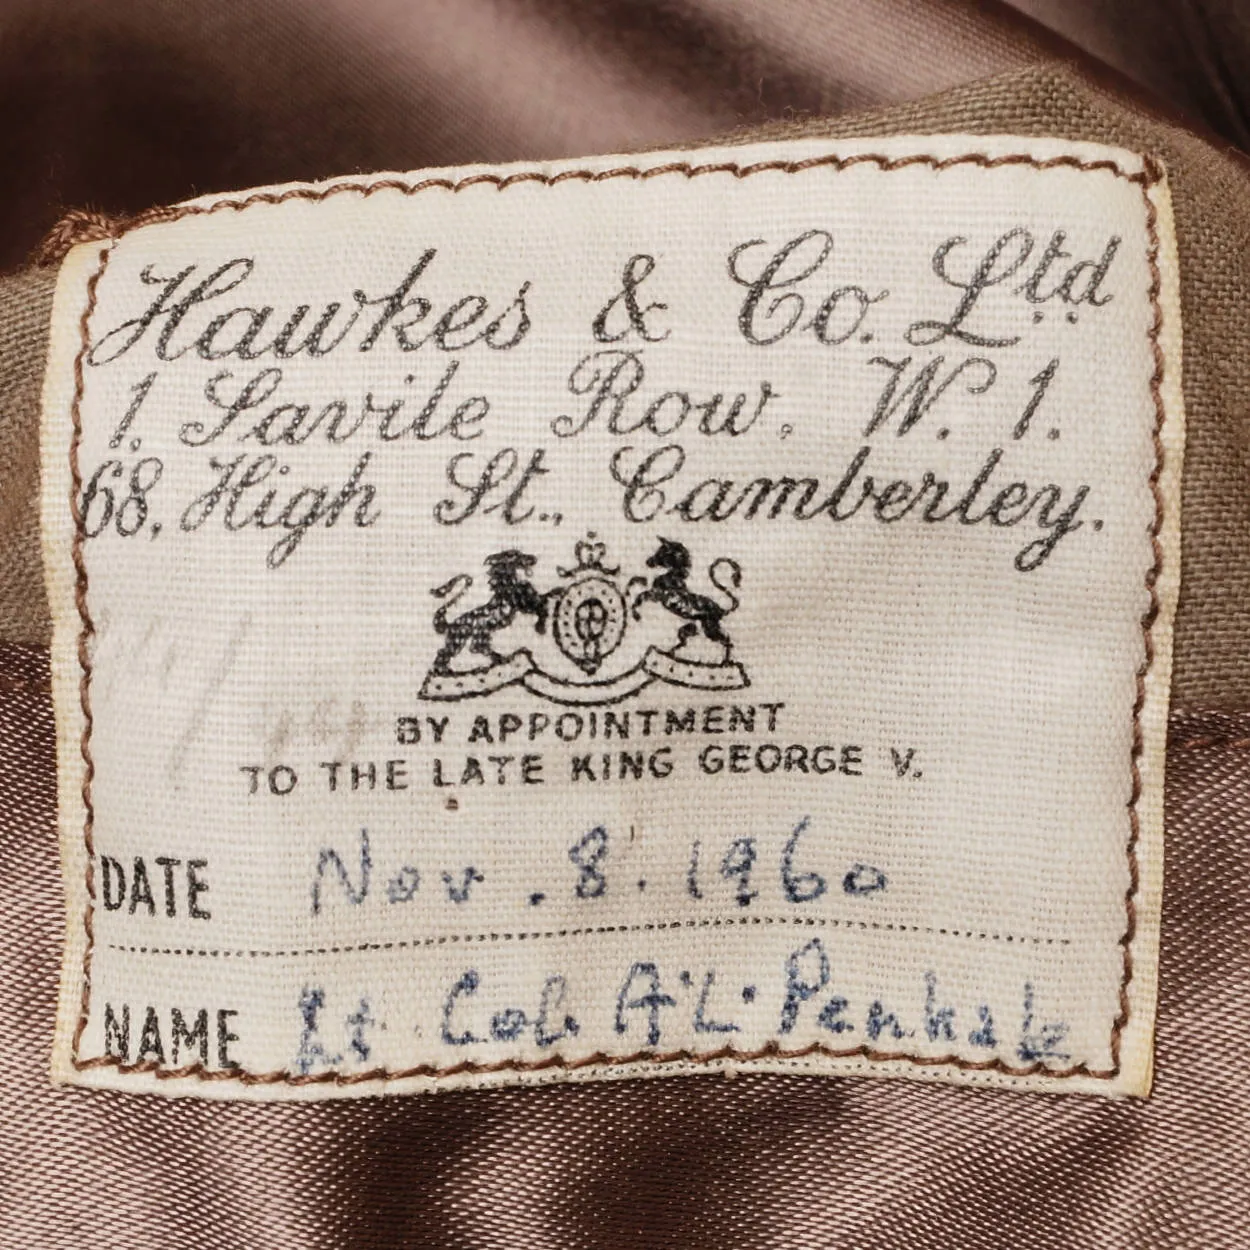 Hawkes & Co. Ltd
1, Savile Row, W. 1.
68, High St., Camberley.
BY APPOINTMENT
TO THE LATE KING GEORGE V.
DATE Nov. 8. 1960
NAME Lt Col A.L.